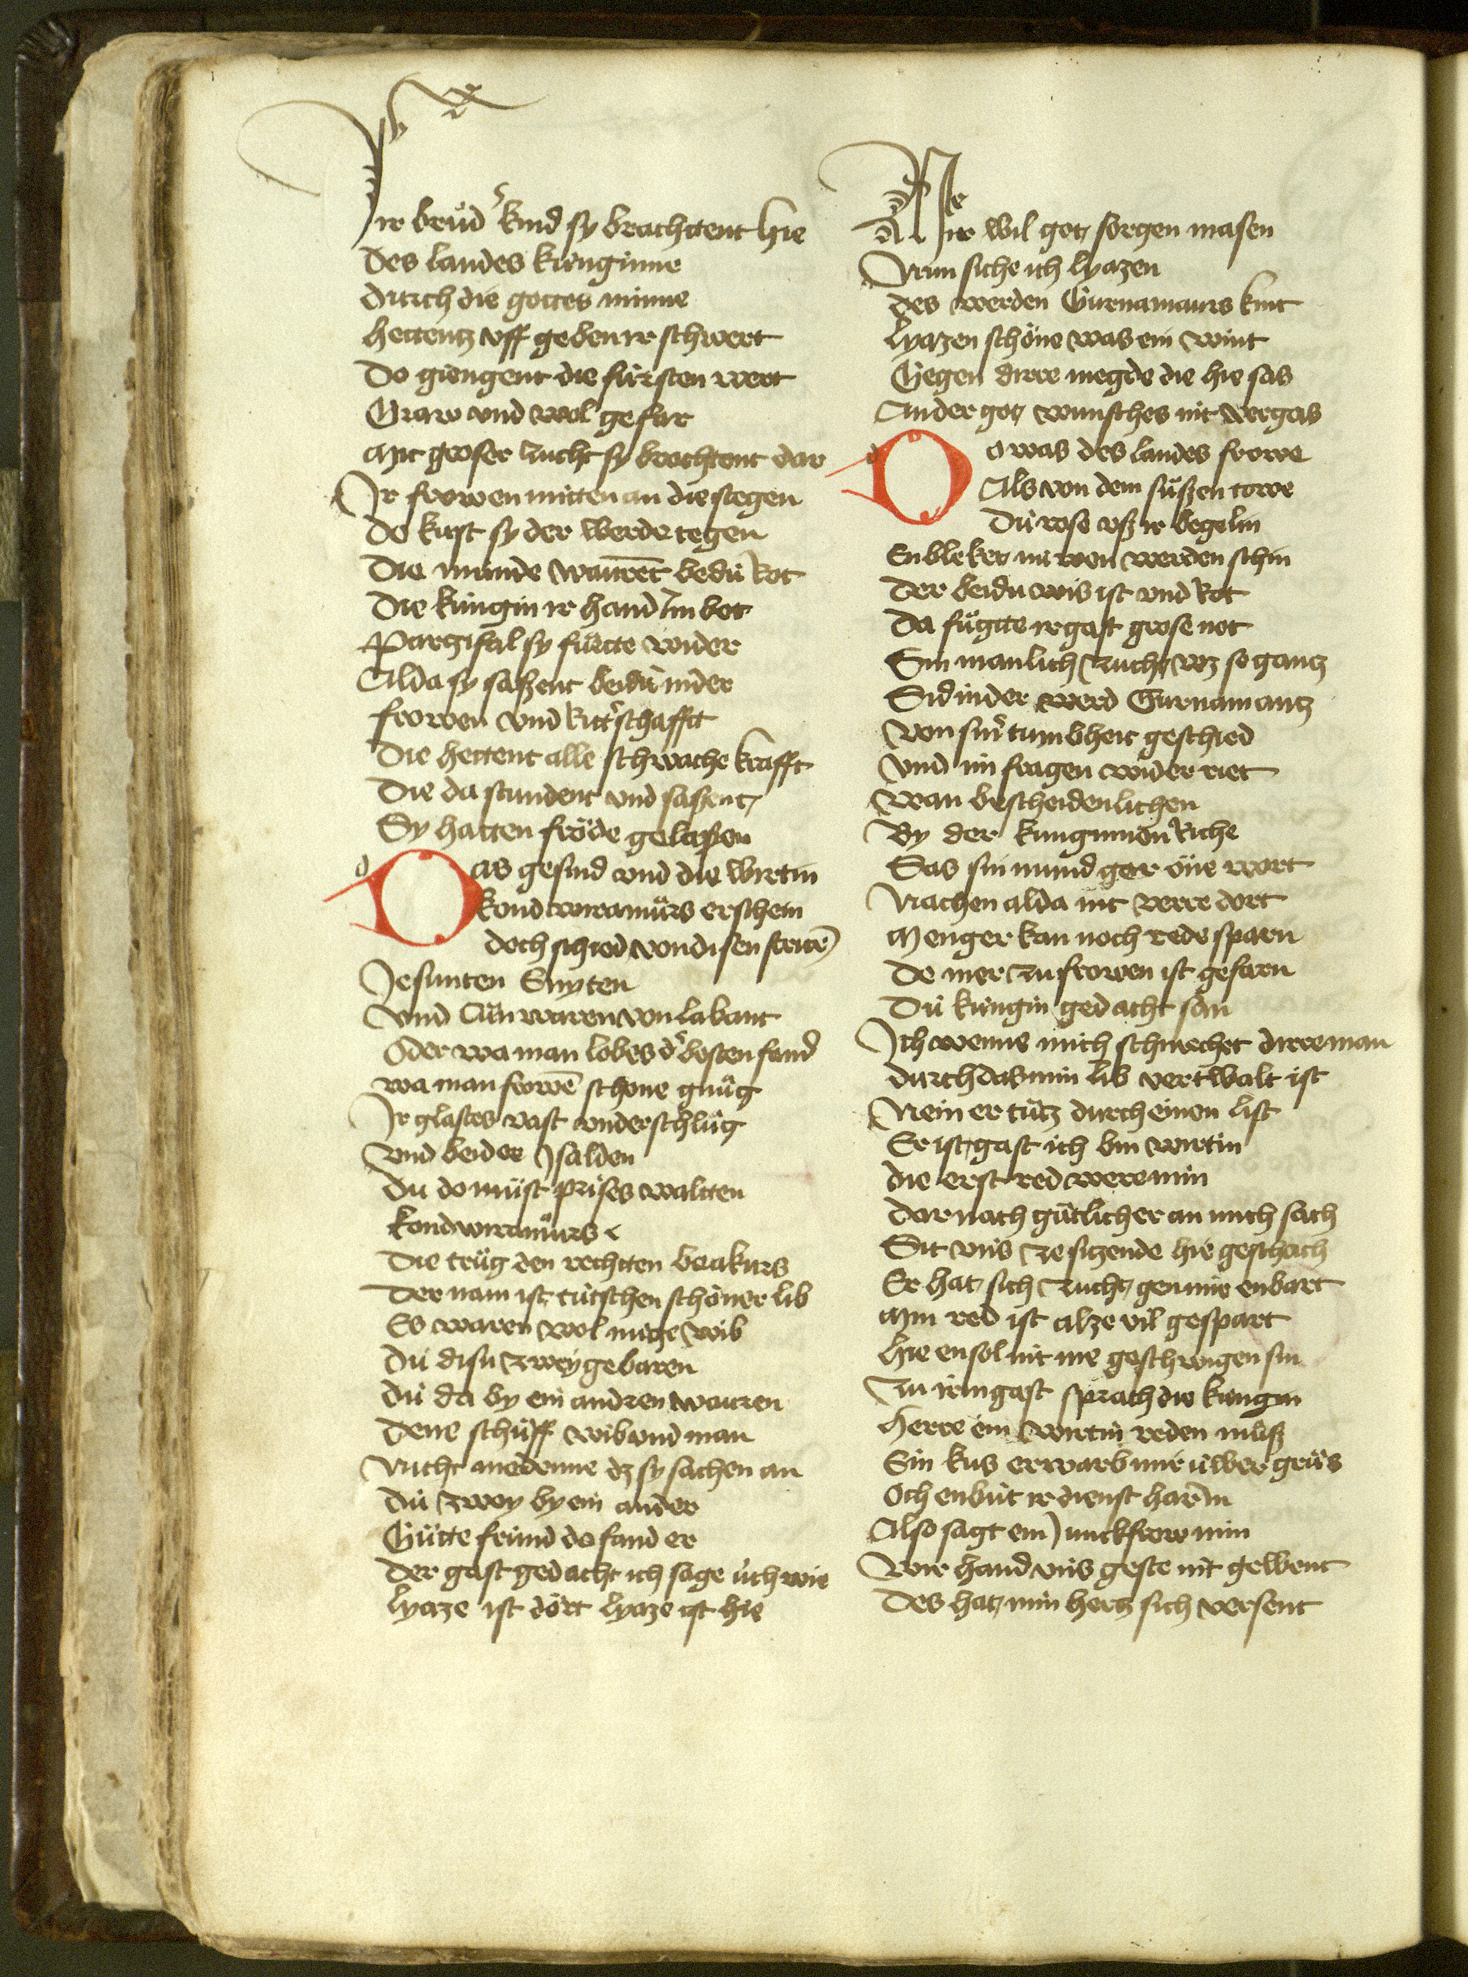 Ir brůd' kind sy brachttent hie
Des landes kúnginne
Durch die gottes minne
Hettentz vff geben ir schwert
Do giengent die fúrsten wert
Graw vnd wol gefar
Mit groser zucht sy brochtent dar
Ir frowen mitten an die stegen
Do kust sy der werde tegen
Die munde wauret bedú rot
Die kúngin ir hand im bot
Parzifal sy fůrtte wider
Alda sy saßent beidú nider
Frowen vnd rit'schafft
Die hettent alle schwache krafft
Die da stundent vnd saßent
Sy hatten fröde gelaßen
Das gesind vnd die wirtin
Kondwiramůrs erschein
Doch schied von disen strit
Jesunten Enyten
Vnd Cůnwaren von labant
Oder wa man lobes d' besten fand
Wa man frowē schöne gnůg
Ir glastes vast vnderschlůg
Vnd beider Jsalden
Dú do můst prises waltten
Kondwiramůrs
Die trůg den rechtten beakurs
Der nam ist tútschen schöner lib
Es waren wol nútze wib
Dú disu zwey gebaren
Dú da by ein andren wauren
Dene schůff wib vnd man
Nicht me denne dz sy sachen an
Dú zwey by ein ander
Gůtte frúnd do fand er
Der gast gedacht ich sage úch wie
Lyaze ist dört lyaze ist hie
Mir wil got sorgen masen
Nun siche ich lyazen
Des werden Gurnamaurs kint
Lyazen schöne was ein wint
Gegen dirre megde die hie sas
An der got wunsches nit vergas
Do was des landes frowe
Als von dem süßen towe
Dú rose vß ir begelin
Enbleket nu von werden schin
Der beidu wis ist vnd rot
Da fůgtte ir gast grose not
Sin manlich zucht wz so gantz
Sid in der werd Gurnamantz
Von sin' tumbheit geschied
Vnd im fragen wider riet
Wan bescheidenlichen
By der kúnginnen riche
Sas sin mund gar óne wort
Nachen alda nit verre dort
Menger kan noch rede sparn
De mer zu frowen ist gefarn
Dú kúngin gedacht san
Ich wenne mich schmechet dirre man
Durch das min lib vertwalt ist
Nein er tůtz durch einen list
Er ist gast ich bin wirtin
Die erst red were min
Dar nach gůtlich er an mich sach
Sit vns ze sitzende hie geschach
Er hat sich zucht gen mir enbart
Min red ist alze vil gespart
Hie en sol nit me geschwigen sin
Zu irem gast sprach die kúngin
Herre ein wirtin reden můß
Ein kus erwarb mir úwber grůs
Och enbút ir dienst har in
Also sagt ein Junckfrow min
Wir hand vns geste nit gewent
Des hat min hertz sich versent